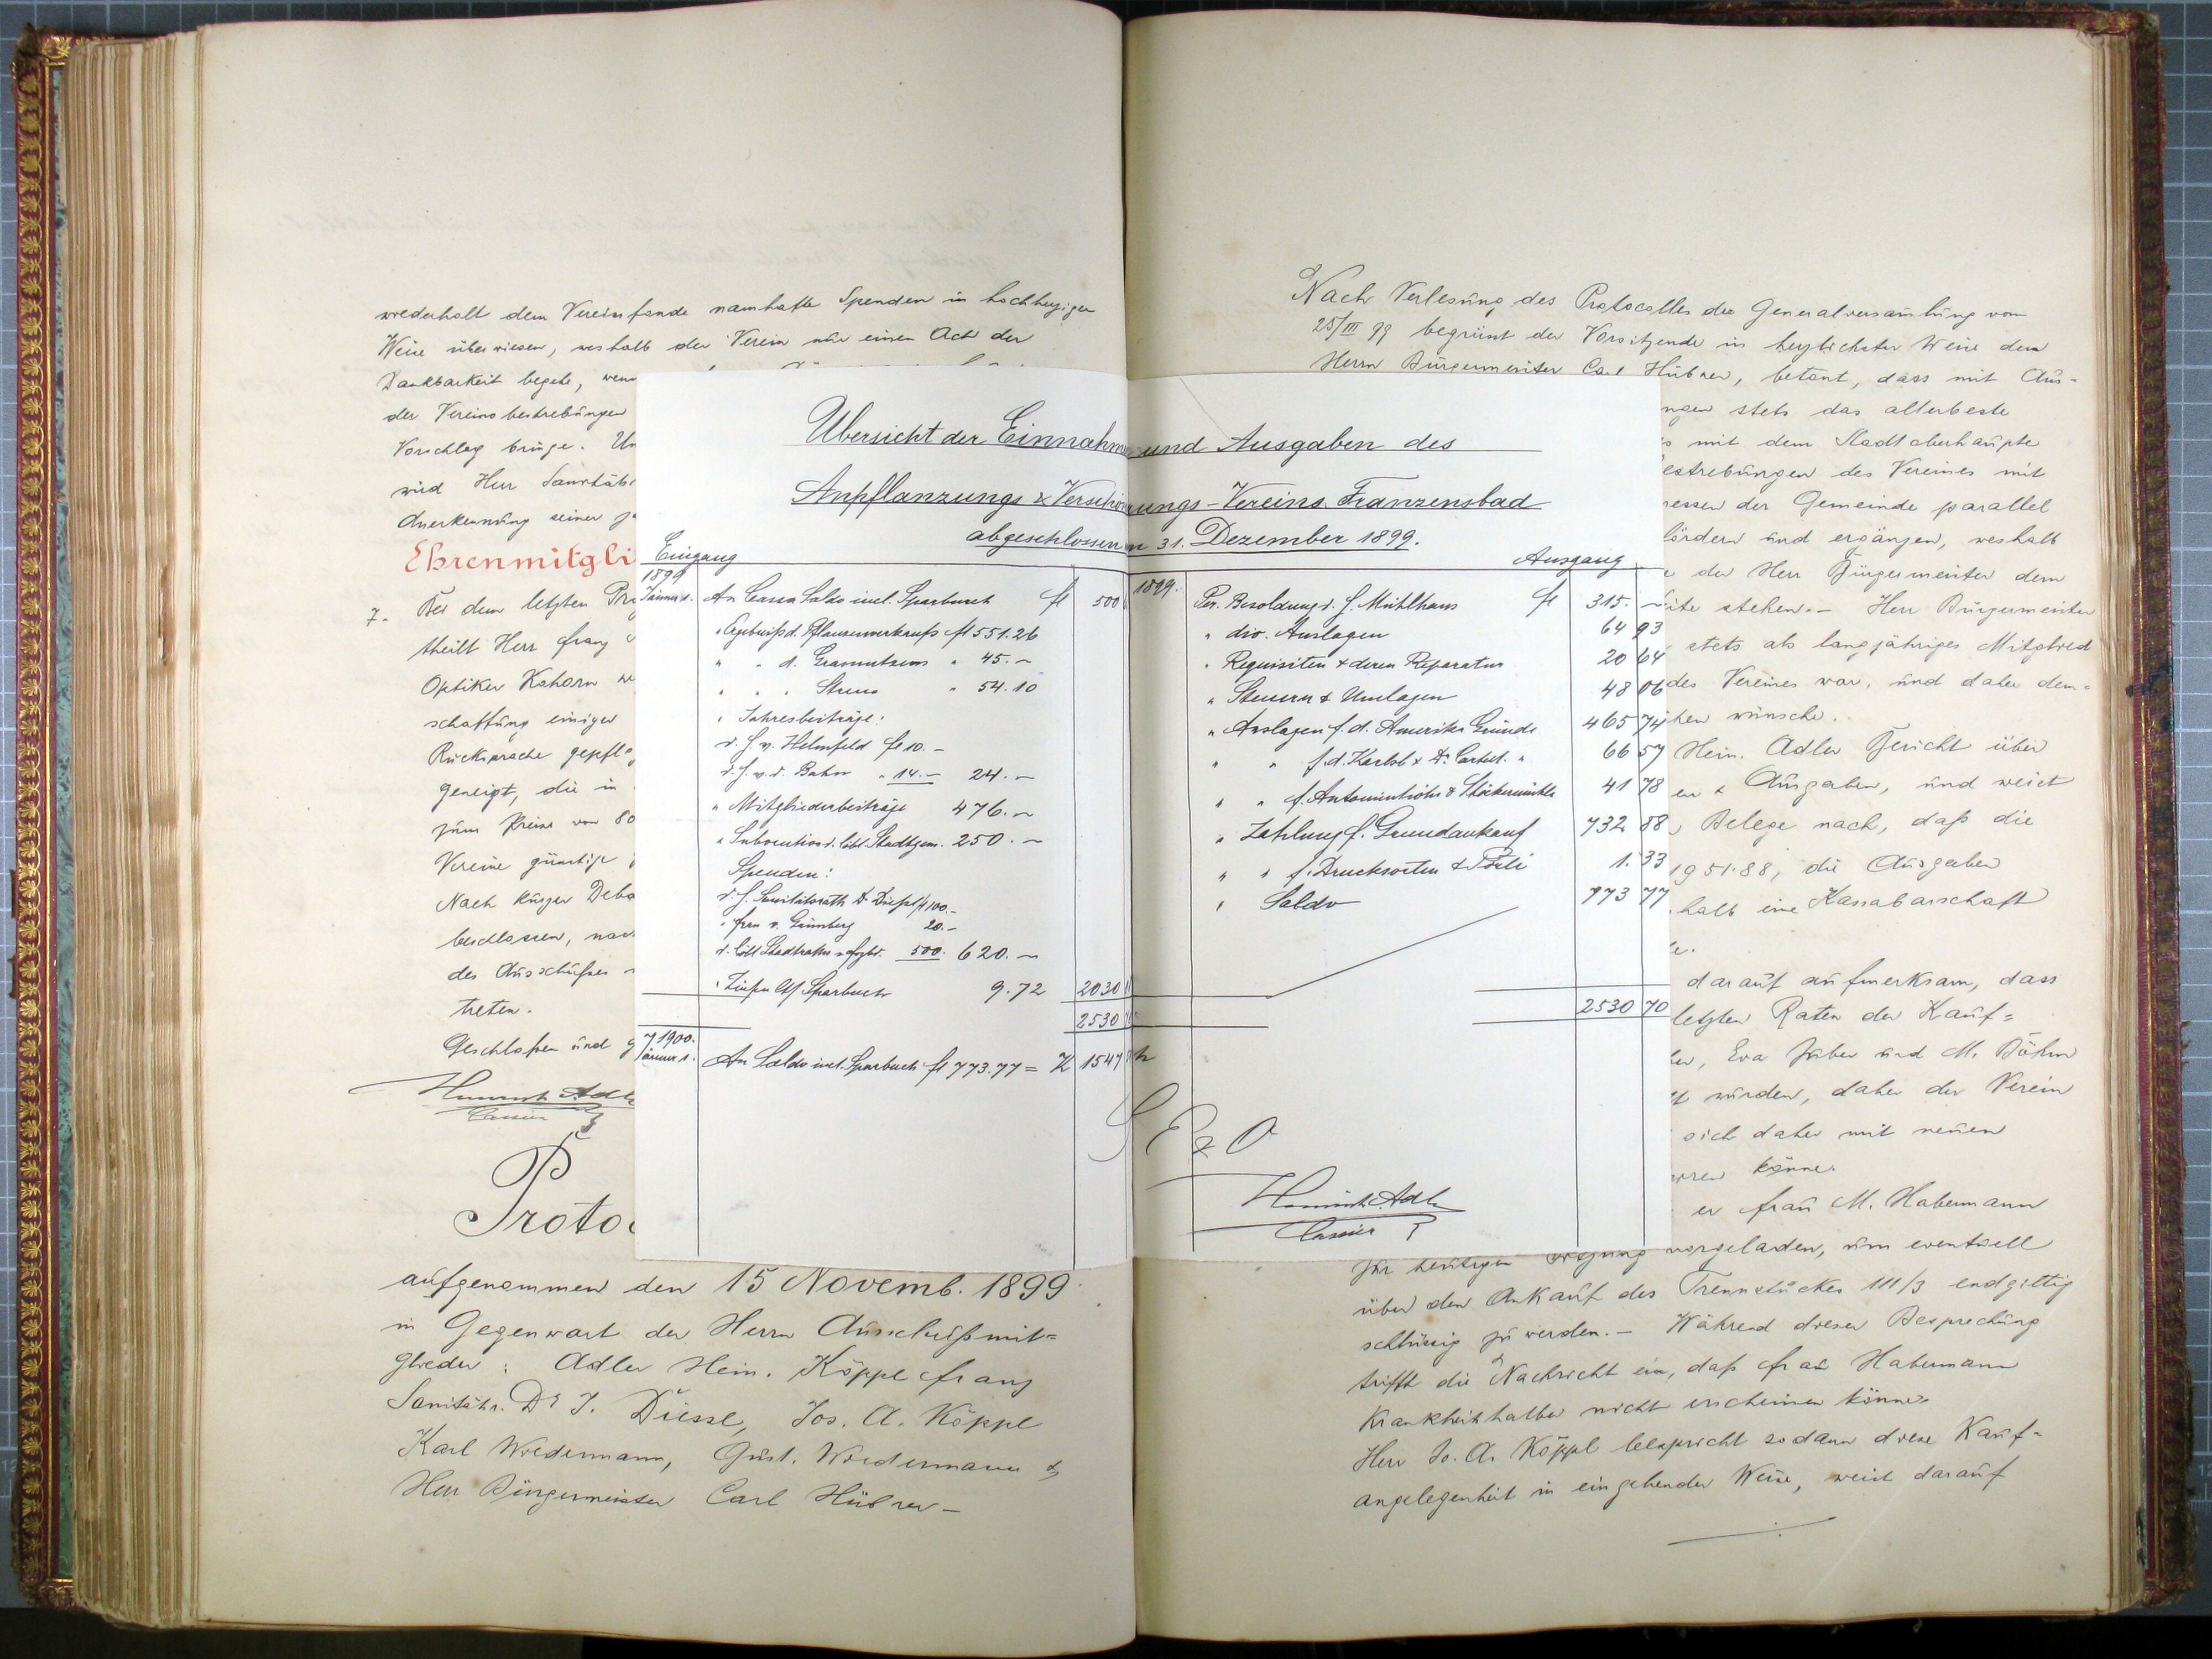 wiederholt dem Vereinsfonde namhafte Spenden in hochherziger
Weise überwiesen, weshalb der Verein nur einen Act der
Dankbarkeit begehe, wenn
der Vereinsbestrebungen
Vorschlag bringe. Un
wird Herr Sanitäts
Anerkennung seiner
Ehrenmitgli
7. Bei dem letzten
theilt Herr Franz
Optiker Kohorn
schaffung einiger
Rücksprache gepflo
geneigt, die in
zum Preise von 80
Vereine günstige
Nach kurzer Deba
beschlossen, nach
des Ausschußes
treten.
Geschloßen und g
Heinrich Adler
Cassier
Proto
aufgenommen den 15 Novemb. 1899
in Gegenwart der Herrn Ausschußmit=
glieder: Adler Hein. Köppl Franz
Sanitätsr. Dr J. Diessl, Jos. A. Köppl
Karl Wiedermann, Gust. Wiedermann &
Herr Bürgermeister Carl Hübner –
Übersicht der Einnahmen und Ausgaben des
Anpflanzungs & Verschönerungs-Vereins Franzensbad
abgeschlossen 31. Dezember 1899.
Eingang
1899
Jänner 1. An Cassa Saldo incl. Sparbuch fl 500
" Ergebniß d. Pflanzenverkaufs fl 551.26
" " d. Grasnutzens " 45.–
" " " Streu " 54.10
" Jahresbeiträge:
v. H. v. Helmfeld fl 10.–
v. H. v. d. Bahn " 14.– 24.–
" Mitgliederbeiträge 476.–
" Subvention d. löbl. Stadtgem. 250.–
Spenden:
v. H. Sanitätsrath Dr Diessl fl 100.–
" Frau v. Grünberg 20.–
d. löbl Stadtrathes 500. 620.–
" Zinsen Sparbuch 9.72 2030
2530
1900.
Jänner 1. An Saldo incl. Sparbuch fl 773.77 = K 1547 h
Ausgang
1899. Per Besoldung d. H. Mühlhans fl 315.–
" div. Auslagen 64 93
" Requisiten & deren Reparatur 20 64
" Steuern & Umlagen 48 06
" Auslagen f. d. Amerika Gründe 465 74
" " f. d. Karlsb & Dr Cartel. " 66 57
" " f. Antonienhöhe & Stöckermühle 41 78
" Zahlung f. Grundankauf 732 88
" " f. Drucksorten & Porti 1. 33
" Saldo 773 77
2530 70
S E & O
Heinrich Adler
Cassier
Nach Verlesung des Protocolles der Generalversamlung vom
25/III 99 begrüsst der Vorsitzende in herzlichster Weise den
Herrn Bürgermeister Carl Hübner, betont, dass mit Aus=
ngen stets das allerbeste
s mit dem Stadtoberhaupte
estrebungen des Vereines mit
ressen der Gemeinde parallel
fördern und ergänzen, weshalb
der Herr Bürgermeister dem
ite stehen.– Herr Bürgermeister
stets als langjähriges Mitglied
des Vereines war, und daher dem=
hen wünsche.
Hein. Adler Bericht über
en & Ausgaben, und weist
Belege nach, daß die
1951.88, die Ausgaben
halb eine Kassabarschaft
e.
darauf aufmerksam, dass
letzten Raten der Kauf=
er, Eva Huber und M. Böhm
lt wurden, daher der Verein
sich daher mit neuen
ren könne.
er Frau M. Habermann
zur heutigen Sitzung vorgeladen, um eventuell
über den Ankauf des Trennstückes 111/3 endgiltig
schlüssig zu werden.– Während dieser Besprechung
trifft die Nachricht ein, daß Frau Habermann
Krankheitshalber nicht erscheinen könne.
Herr Jo. A. Köppl bespricht sodann diese Kauf=
angelegenheit in eingehender Weise, weist darauf